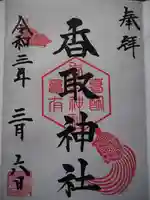 奉拝
香取神社
令和三年
三月六日